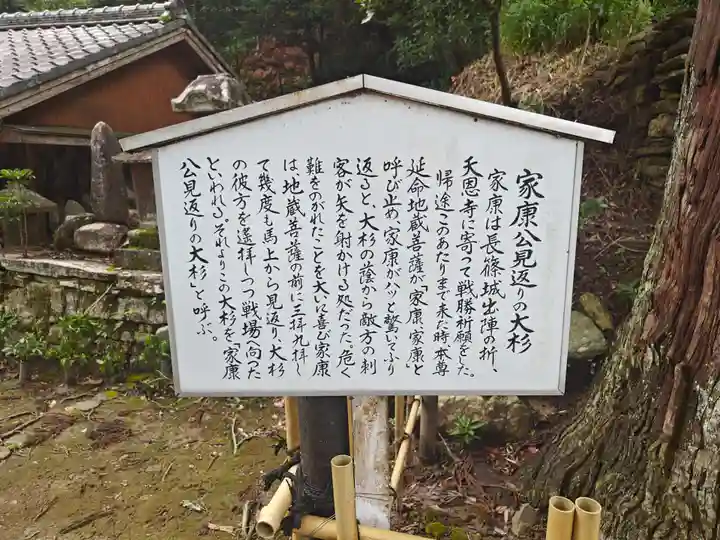 家康公見返りの大杉
家康は長篠城出陣の折、
天恩寺に寄って戦勝祈願をした。
帰途このあたりまで来た時、本尊
延命地蔵菩薩が、「家康、家康」と
呼び止め、家康がハッと驚いてふり
返ると、大杉の蔭から敵方の刺
客が矢を射かける処だった。危く
難をのがれたことを大いに喜む家康
は地蔵菩薩の前に三拝九拝し
て幾度も馬上から見返り、大杉
の彼方を遥拝しつつ戦場へ向った
といわれる。それよりこの大杉を「家康
公見返りの大杉」と呼ぶ。